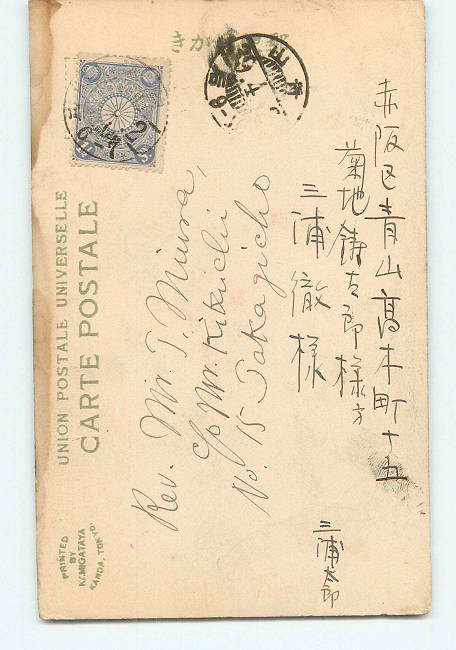 きがか
UNION POSTALE UNIVERSELLE
CARTE POSTALE
赤阪区青山高木町十五
菊地鋳太郎様方
三浦徹様
三浦太郎
Rev. Mr. T. Miura,
c/o Mr. Kikuchi
No. 15 Takagicho
PRINTED
BY
KAMIGATAYA
KANDA, TOKYO.